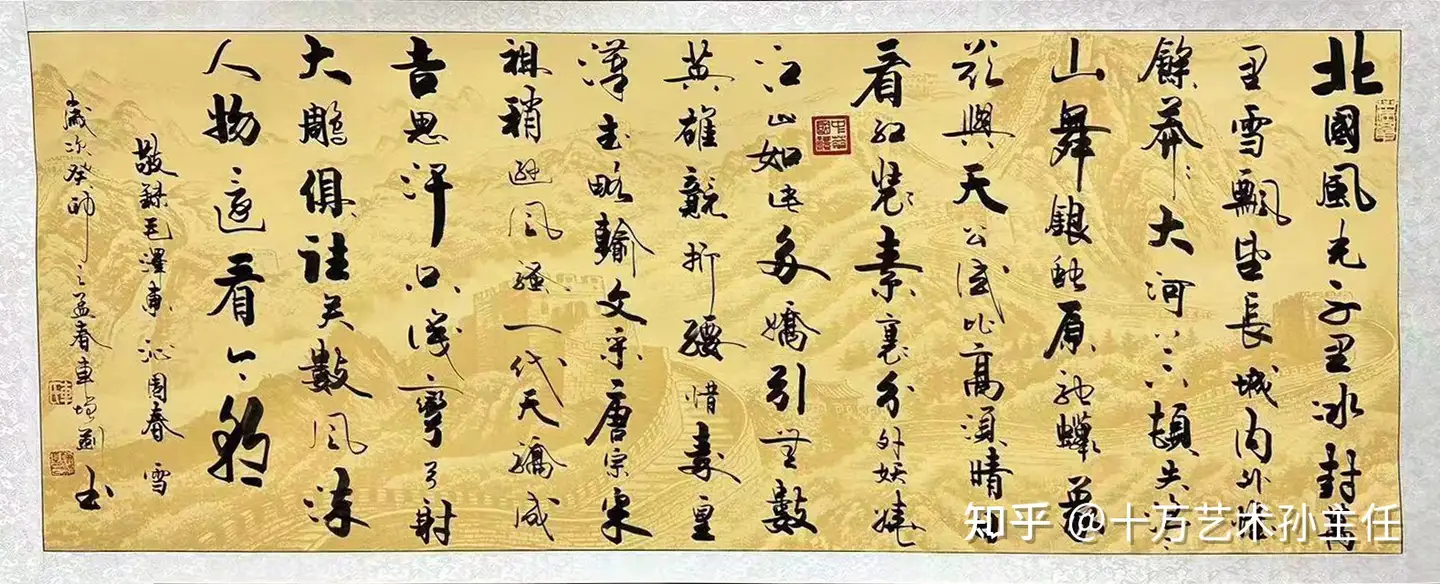 北國風光千里冰封萬
里雪飄望長城内外惟
餘莽〻大河上下頓失滔〻
山舞銀蛇原馳蠟象
欲與天公試比高須晴日
看紅裝素裹分外妖嬈
江山如此多嬌引無數
英雄競折腰惜秦皇
漢武略輸文采唐宗宋
祖稍遜風騷一代天驕成
吉思汗只識彎弓射
大雕俱往矣數風流
人物還看今朝
敬録毛澤東沁園春雪
歲次癸卯之孟春車增書
知乎 @十方艺术孙主任